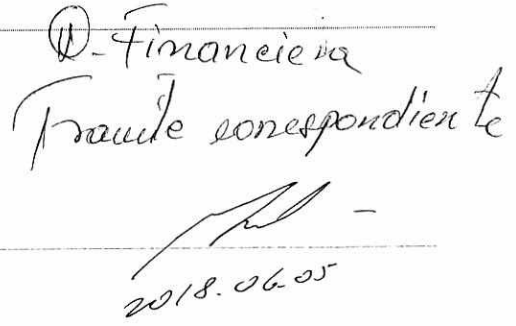 D-Financiera
Tramite correspondiente
2018.06.05